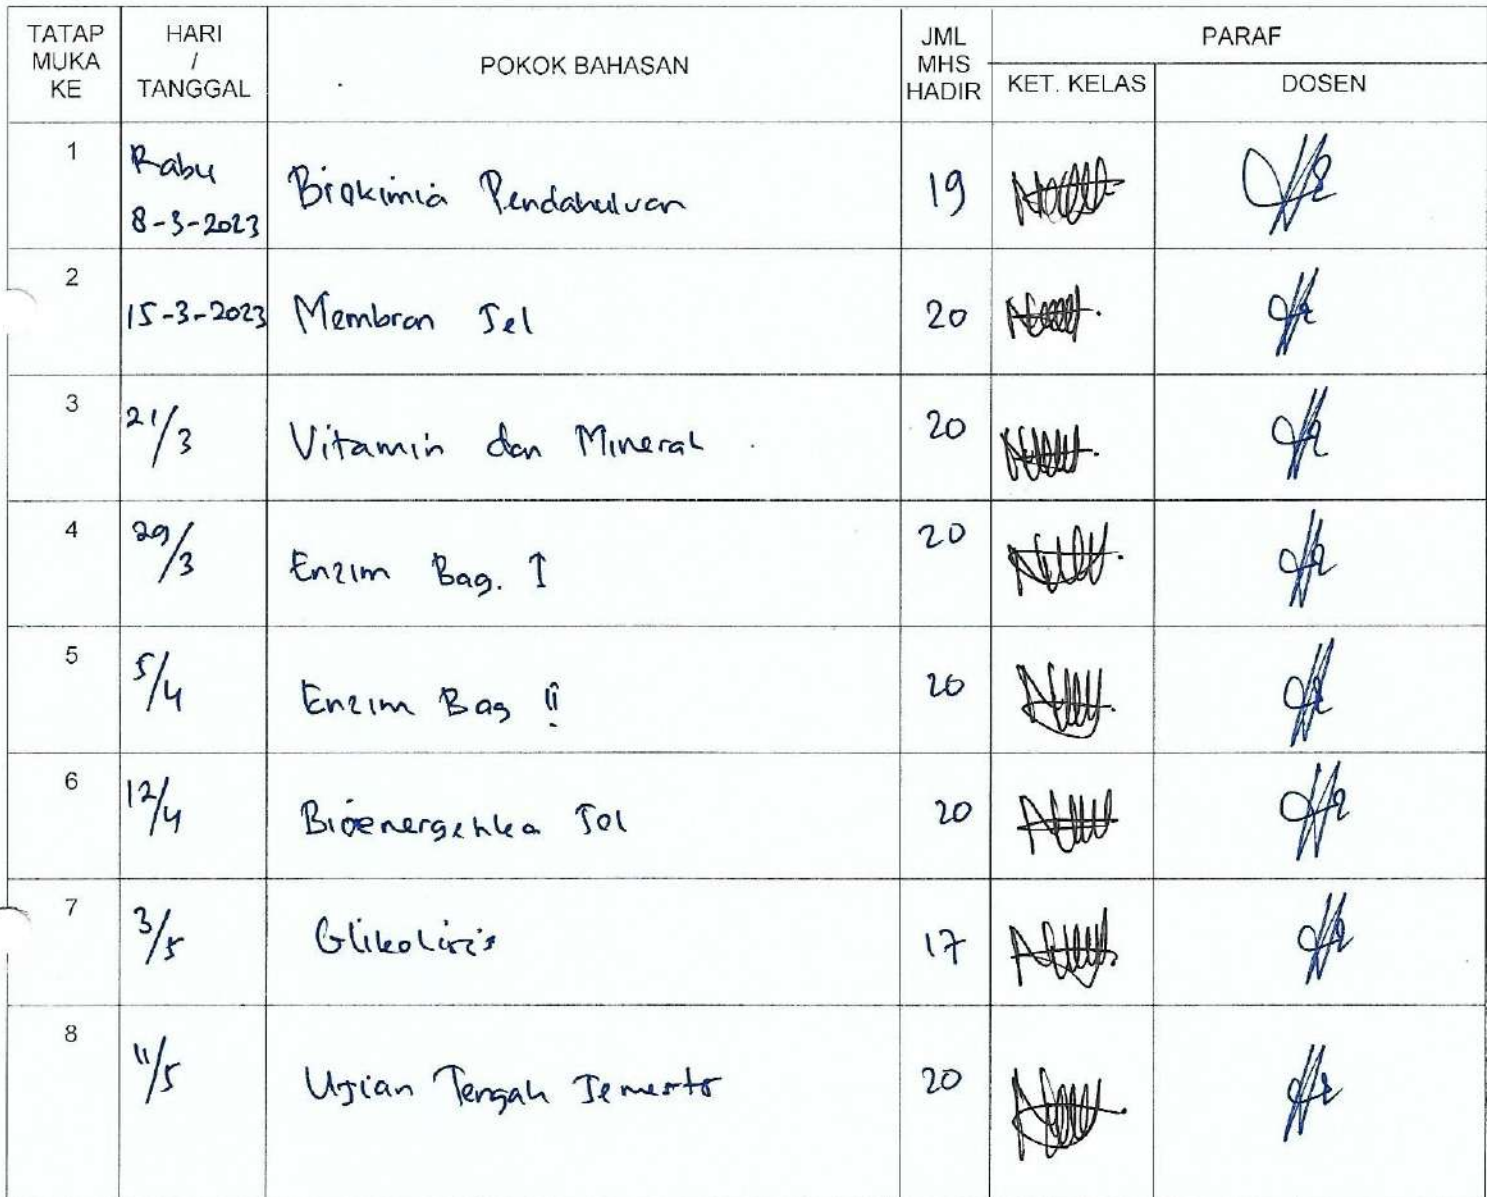 TATAP MUKA KE | HARI / TANGGAL | POKOK BAHASAN | JML MHS HADIR | PARAF
KET. KELAS | DOSEN
1 | Rabu 8-3-2023 | Biokimia Pendahuluan | 19
2 | 15-3-2023 | Membran Sel | 20
3 | 21/3 | Vitamin dan Mineral | 20
4 | 29/3 | Enzim Bag. I | 20
5 | 5/4 | Enzim Bag II | 20
6 | 12/4 | Bioenergetika Sel | 20
7 | 3/5 | Glikolisis | 17
8 | 11/5 | Ujian Tengah Semester | 20